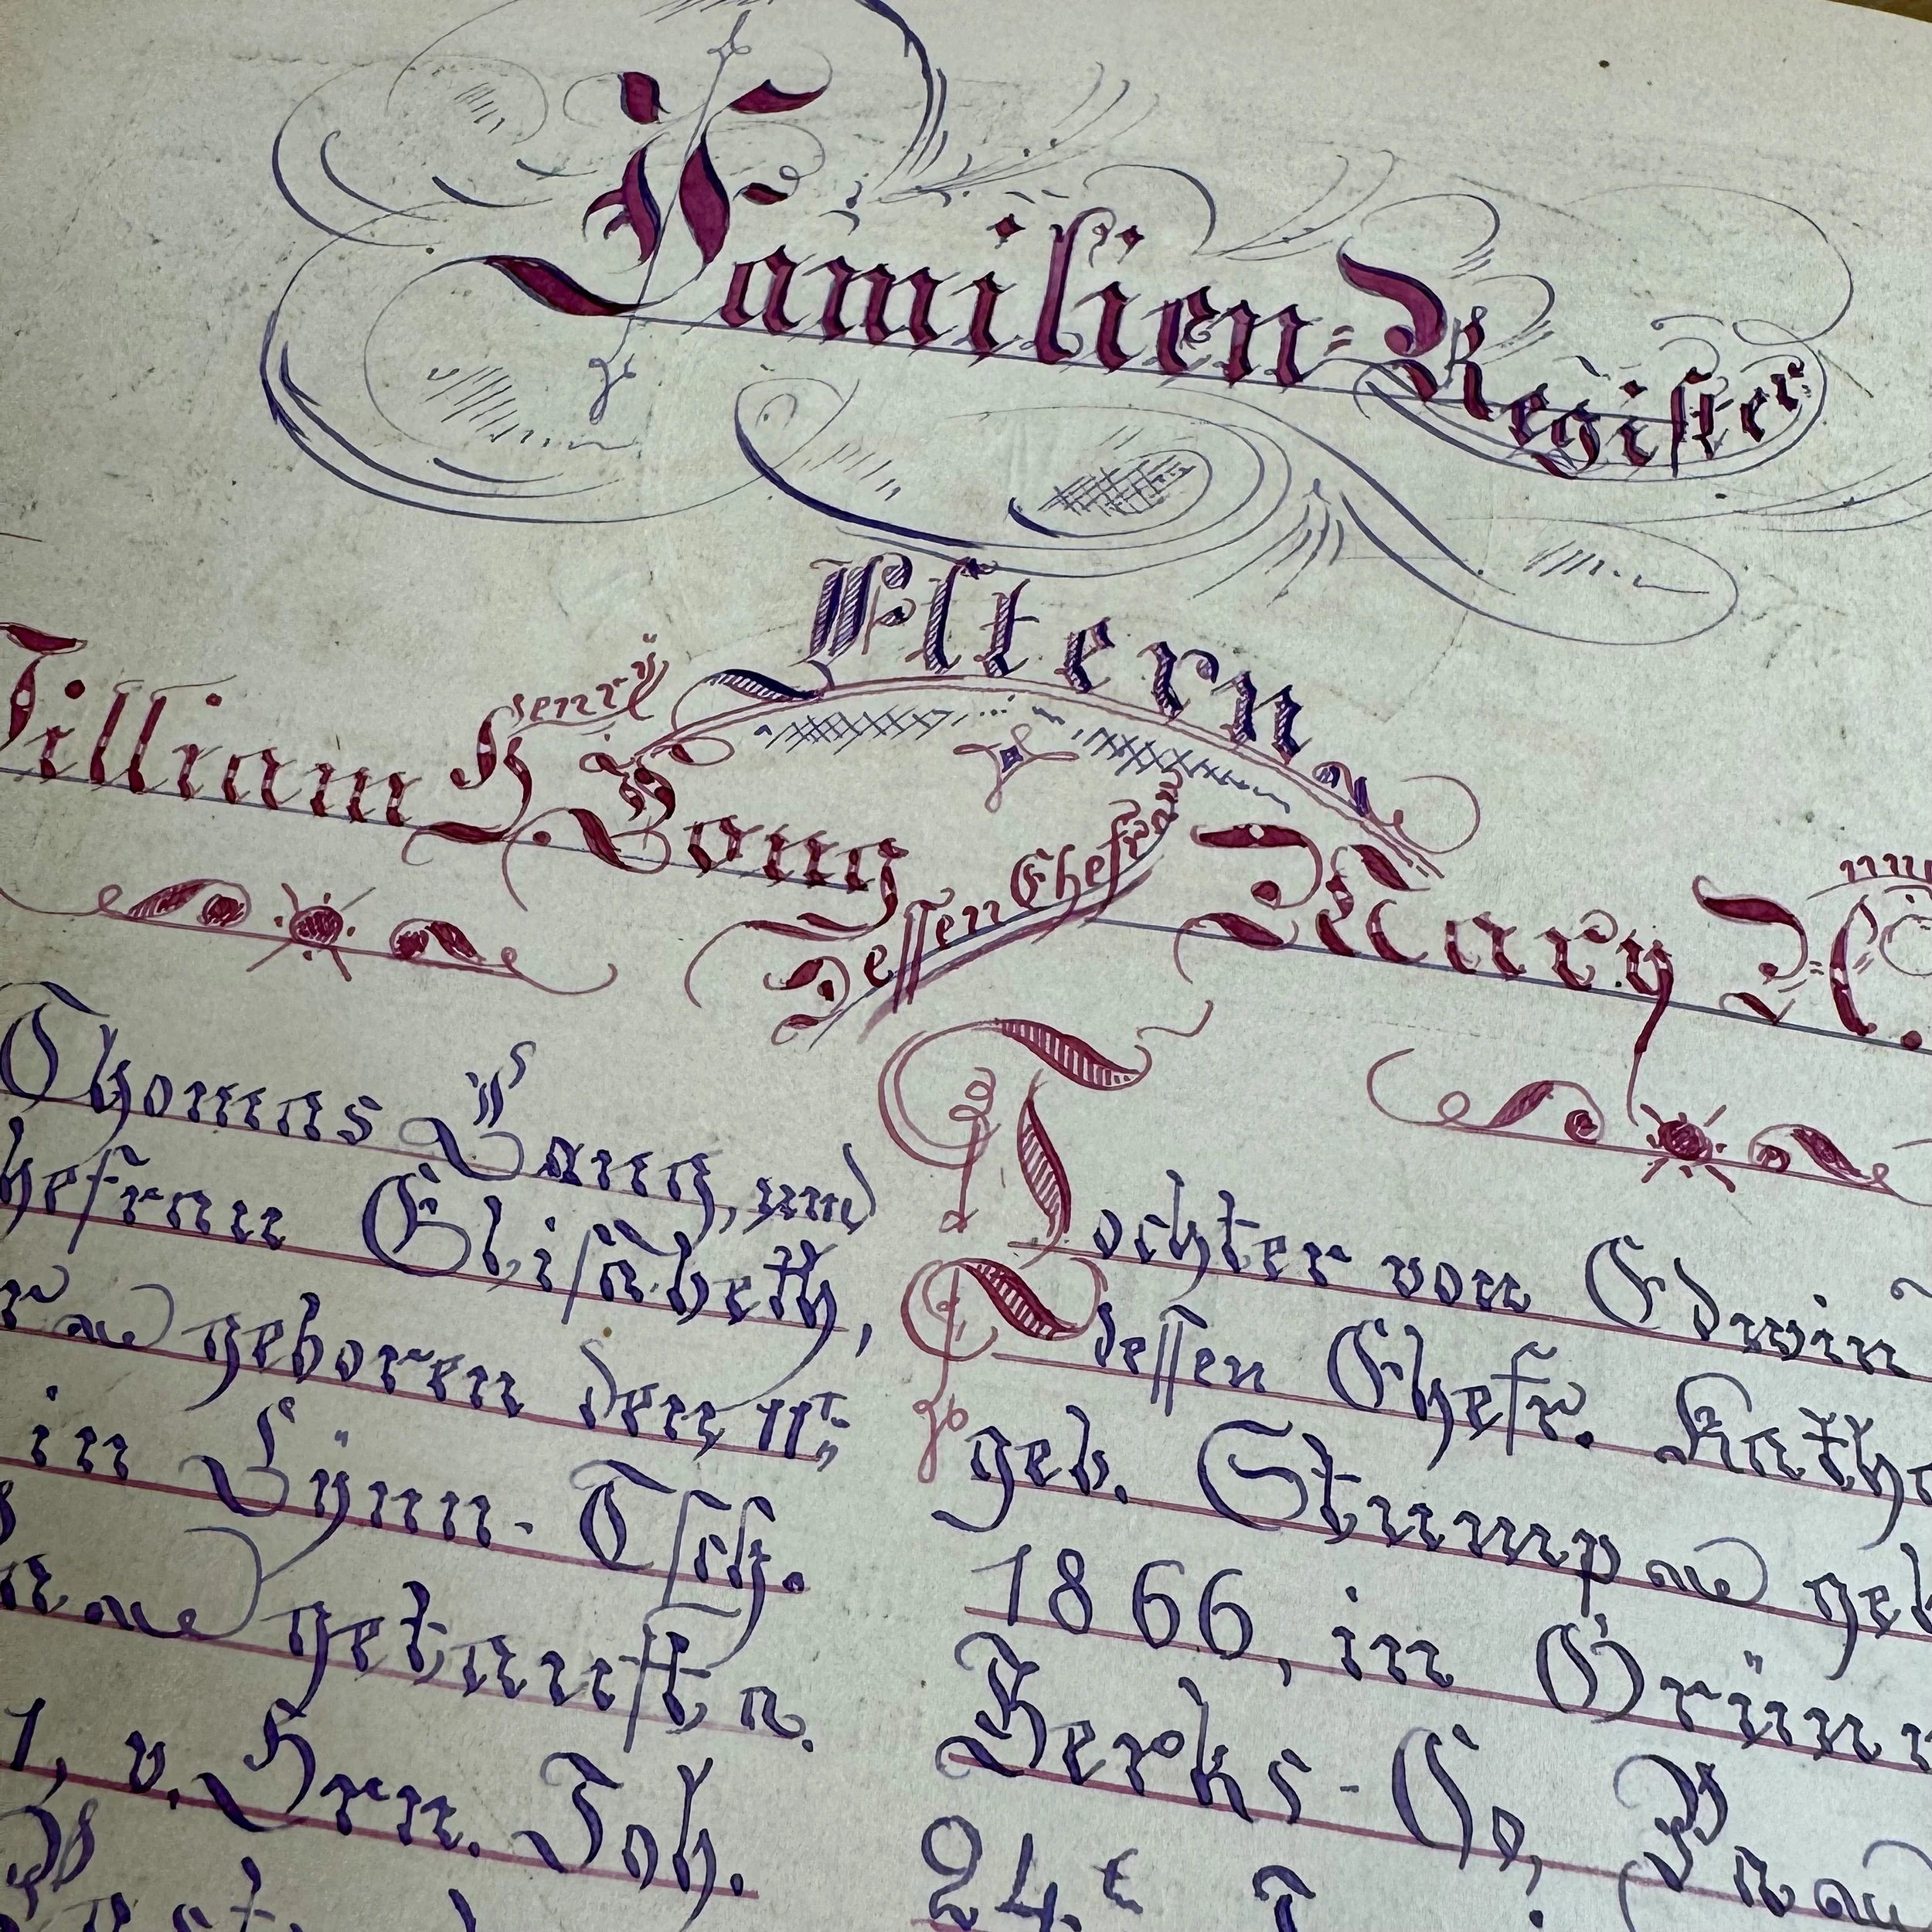 Familien=Register
Eltern
William H. Henry Long
Dessen Ehefr.
Mary
Thomas Lang, und
hefrau Elisabeth,
geboren den 11t
in Lÿnn-Tsch.
getauft a.
1, v. Hrn. Joh.
Tochter von Edwin
dessen Ehefr. Kath
geb. Stump geb
1866, in Grünw
Berks-Co, Pa
24.t